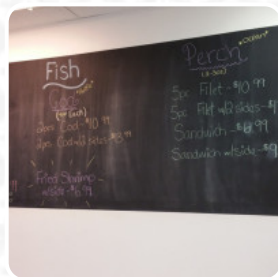 Fish
Cod
2pcs Cod - $10.99
2pcs Cod w/2 sides -
Fried Shrimp -
w/side - $6.99
*Ocean*
Perch
5pc Filet - $10.99
5pc Filet w/2 sides - $
Sandwich - $8.99
Sandwich w/side - $9